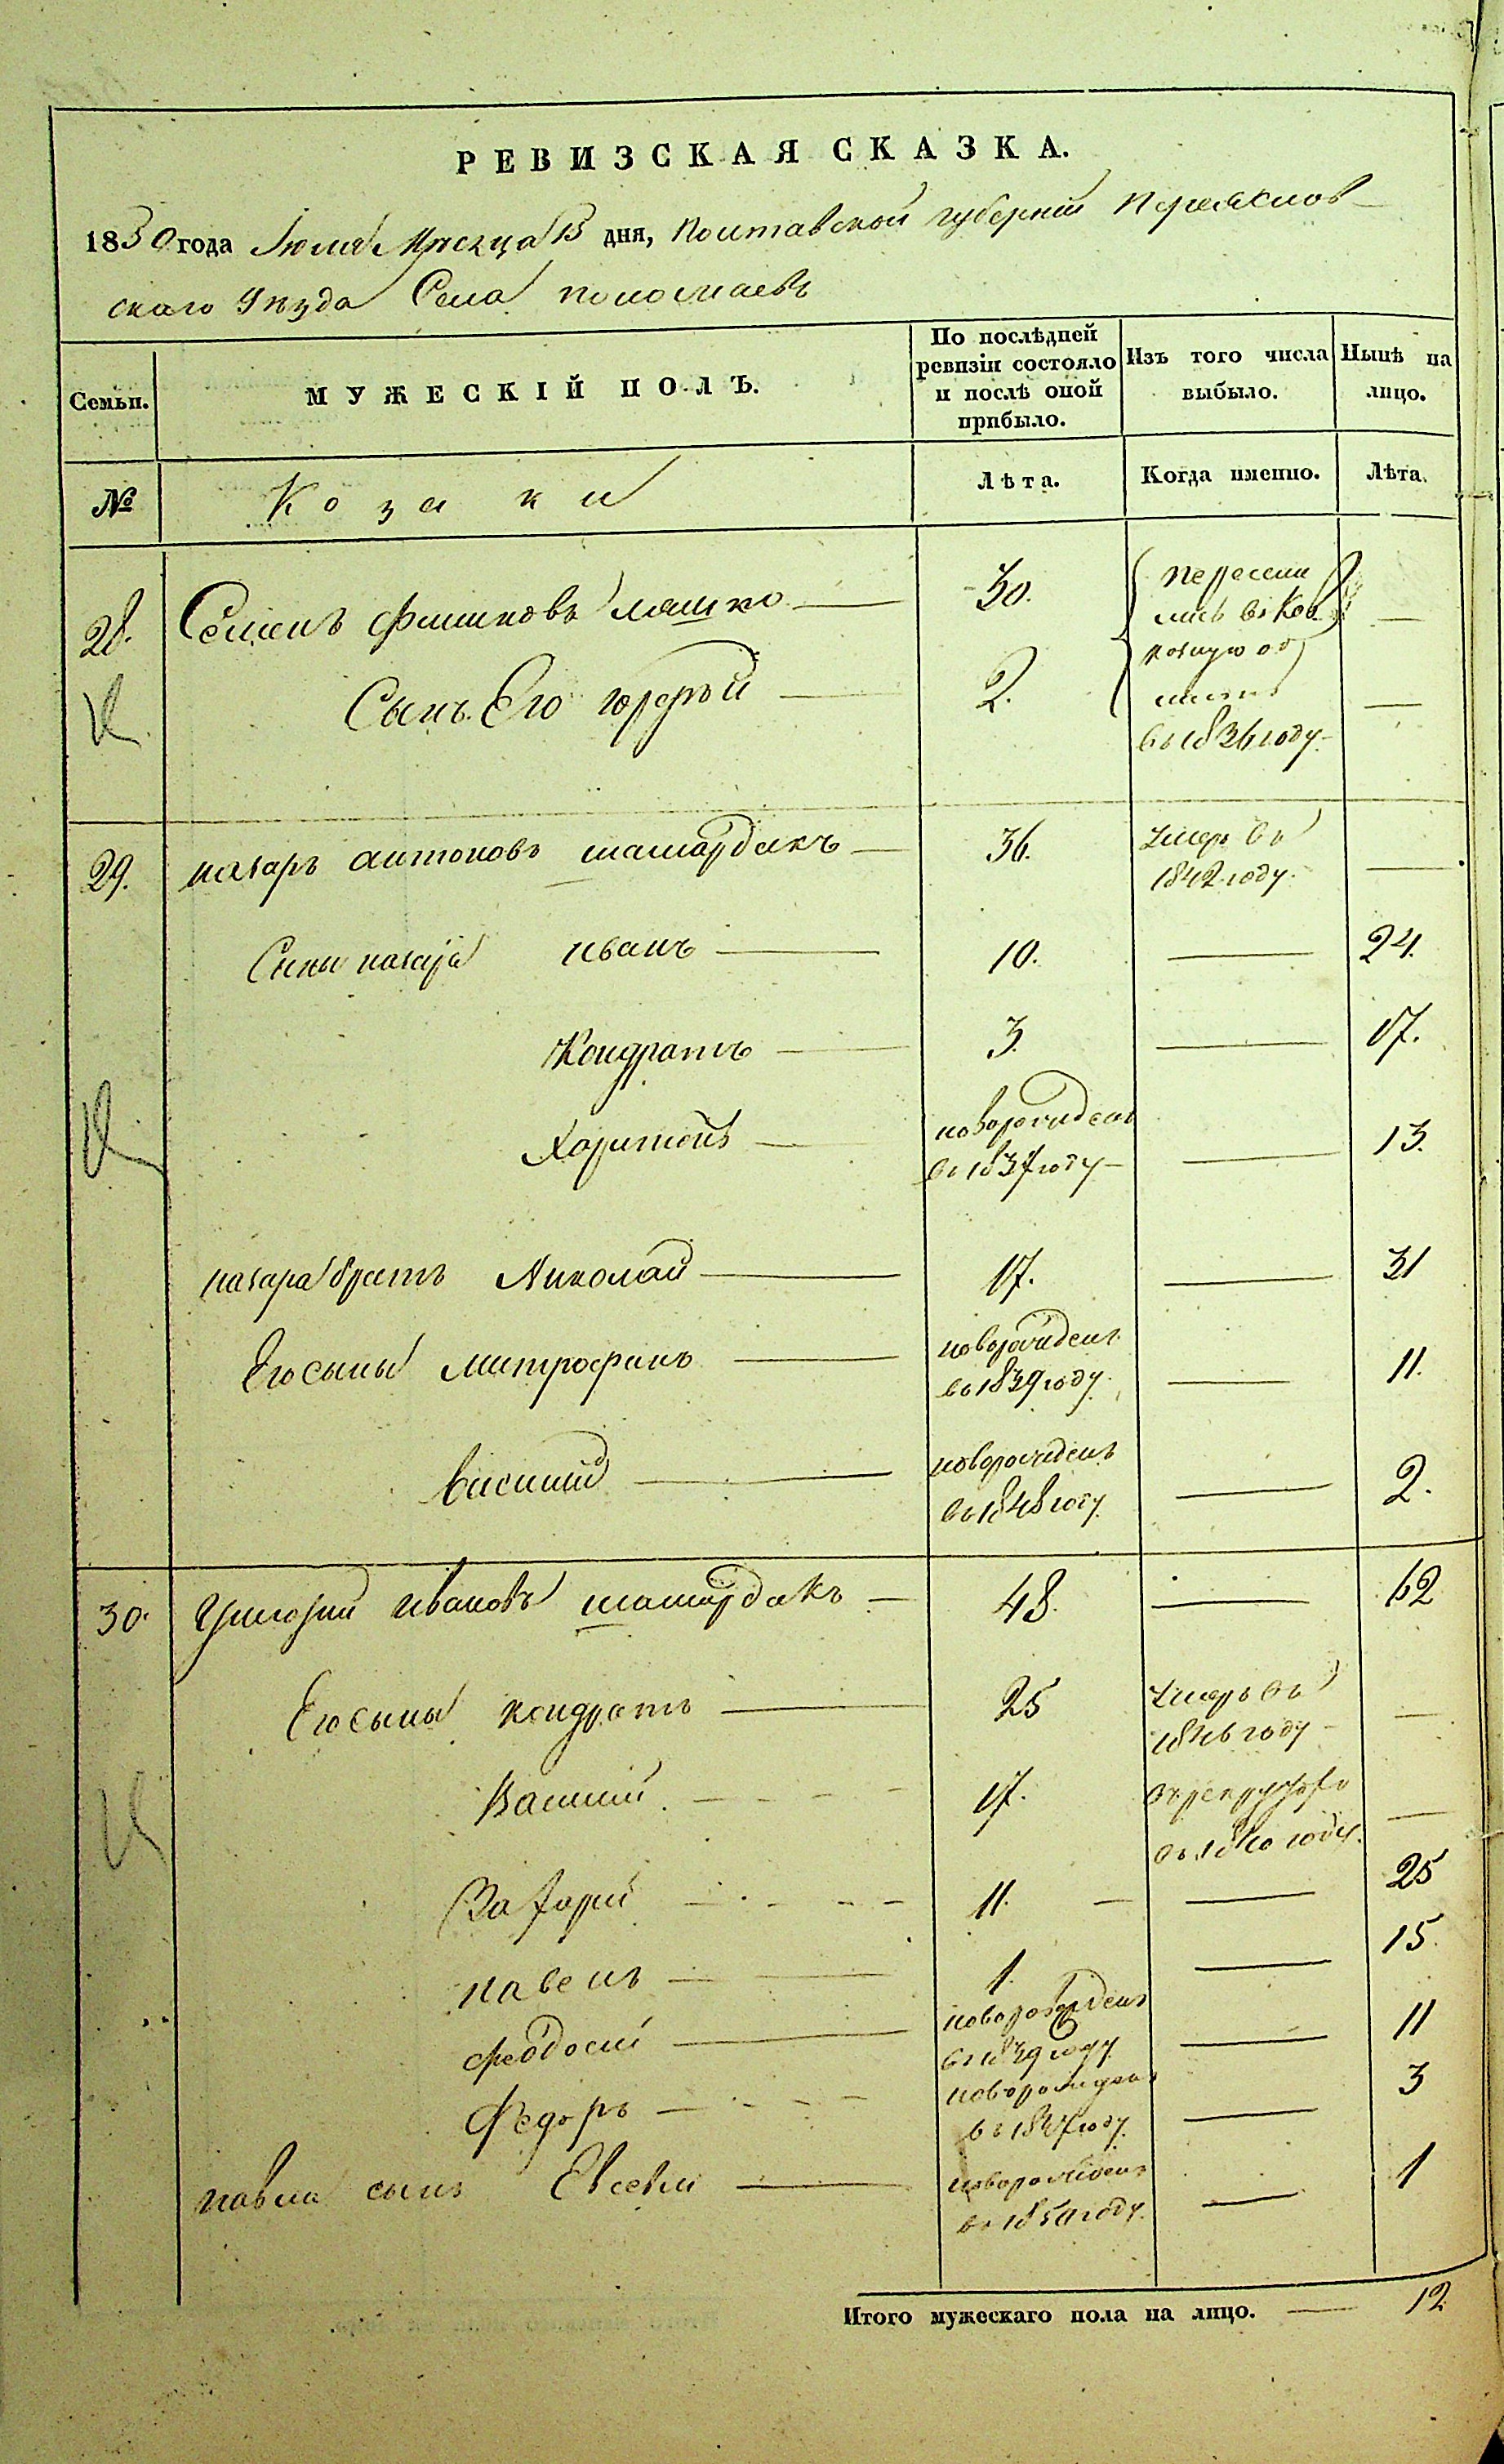 РЕВИЗСКАЯ СКАЗКА.
1850 года Июля Месяца 15 дня, Полтавской губернии Переяслов-
скаго Уезда Села
Семьи.
МУЖЕСКІЙ ПОЛЪ.
По послѣдней ревизіи состояло и послѣ оной прибыло.
Изъ того числа выбыло.
Нынѣ на лицо.
№
Козаки
Лѣта.
Когда именно.
Лѣта.
28. Семенъ Филиповъ Ляшко — 30. —
Сынъ Его юрерѣй — 2. —
Пересели
лись въ Кав
казкую об
ласть
въ 1836 году —
29. назаръ антоновъ шамардакъ — 36. умеръ въ 1842 году. —
Сыны назара иванъ — 10. — 24.
Кондратъ — 3. — 17.
Харитонъ — новорожденъ въ 1837 году — — 13.
назара братъ Николай — 17. — 31
Его сыны митрофанъ — новорожденъ въ 1839 году. — 11.
василий — новорожденъ въ 1848 году. — 2.
30. григорий ивановъ шамардакъ — 48. — 62
Его сыны кондратъ — 25 умеръ въ 1846 году — —
Василий — 17. въ рекруты въ 1840 году. —
Захарий — 11. — — 25
павелъ — 1. — 15.
феодосий — новорожденъ въ 1839 году — 11
Федоръ — новорожденъ въ 1847 году. — 3
павла сынъ Евсевий — новорожденъ въ 1850 году. — 1
Итого мужескаго пола на лицо. — 12